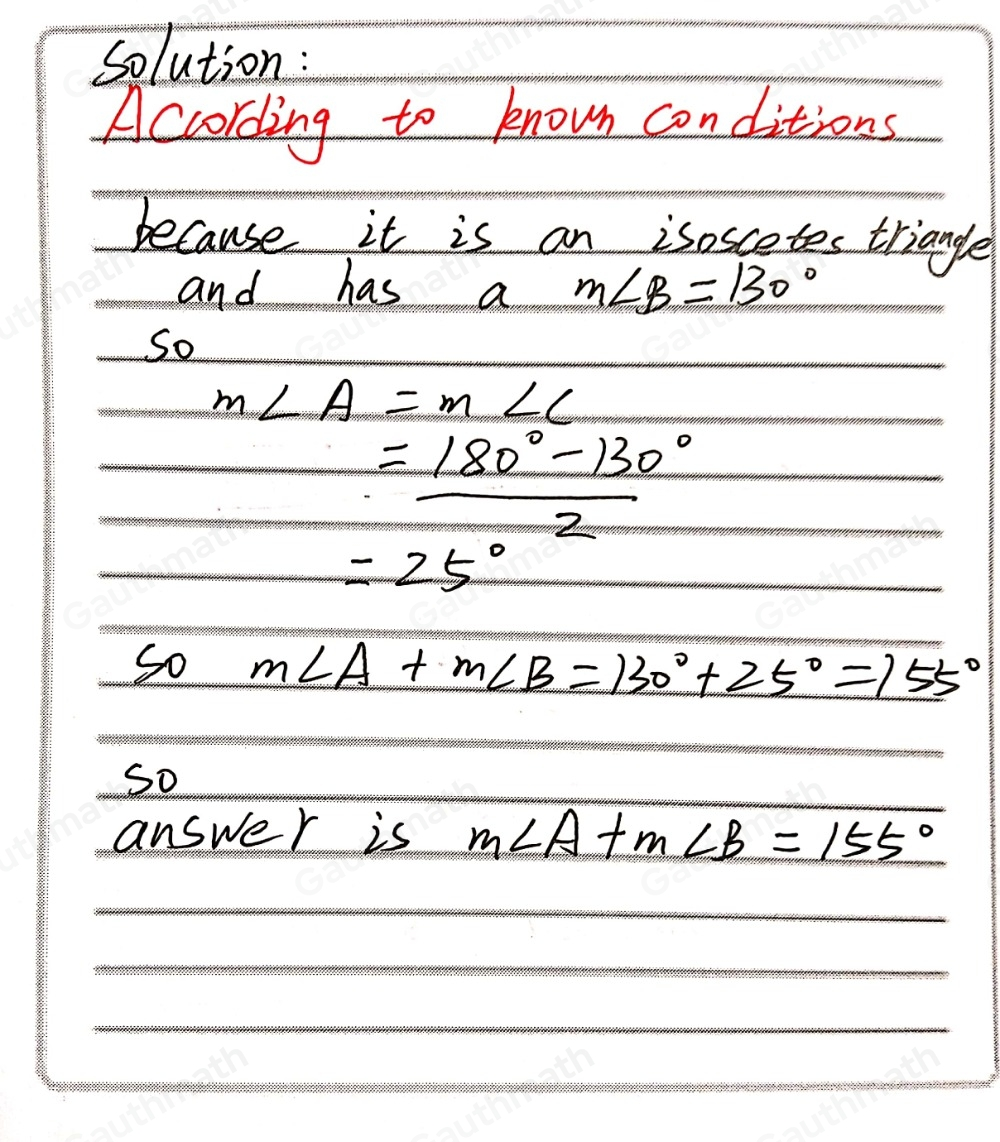 Solution:
According to known conditions
because it is an isoscetes triangle
and has a m∠B=130°
so
m∠A = m∠C
= 180°-130°
2
= 25°
so m∠A + m∠B = 130°+25° = 155°
so
answer is m∠A+m∠B = 155°